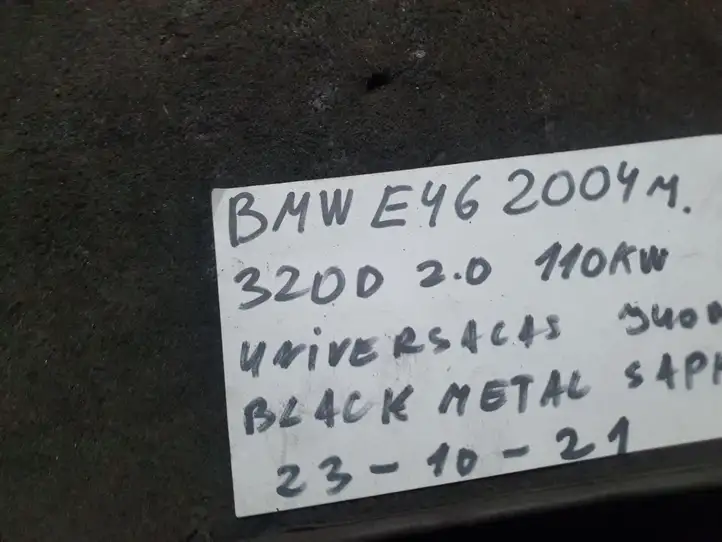 BMW E46 2004 м.
320D 2.0 110KW
UNIVERSALAS
BLACK METAL SAPH
23-10-21